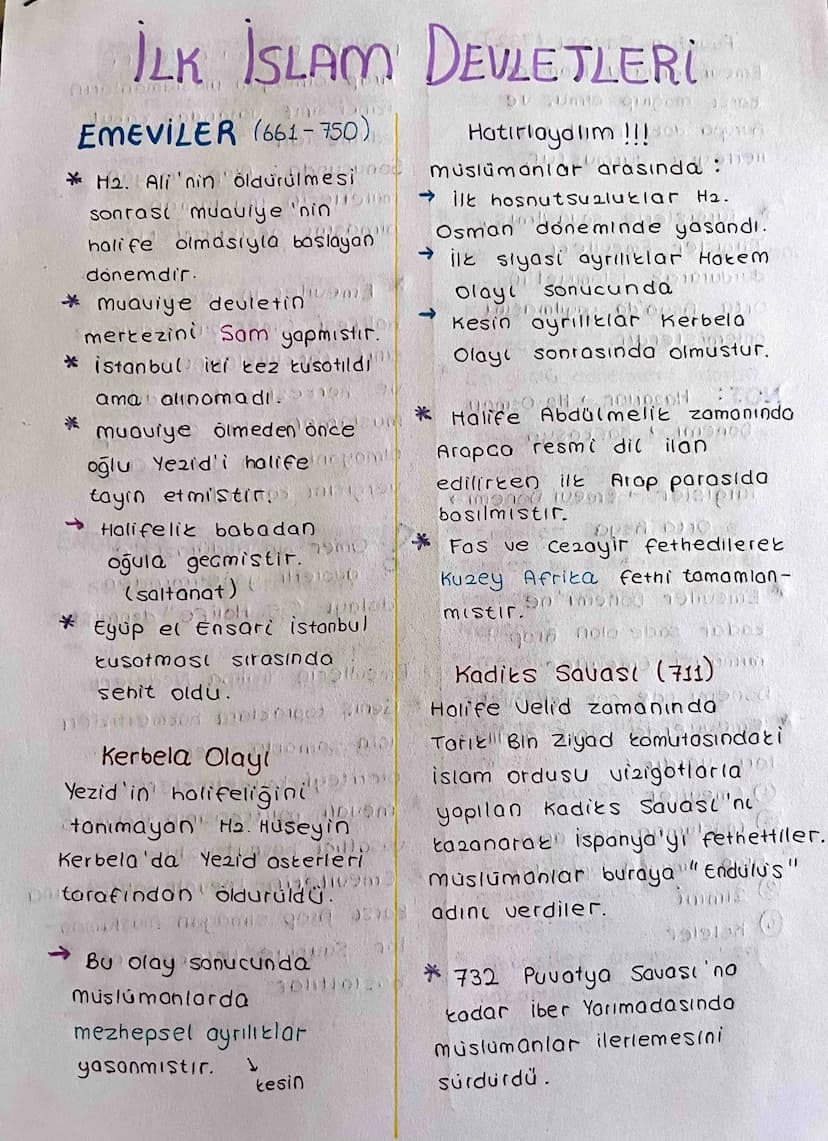 İLK İSLAM DEVLETLERİ
EMEVİLER (661-750)
* Hz. Ali'nin öldürülmesi
sonrası muaviye'nin
halife olmasıyla baslayan
dönemdir.
* muaviye devletin
merkezini Sam yapmıstır.
* istanbul iki kez kusatıldı
ama alınamadı.
* muaviye ölmeden önce
oğlu Yezid'i halife
tayin etmistir.
→ Halifelik babadan
oğula gecmistir.
(saltanat)
* Eyüp el Ensari istanbul
kusatması sırasında
sehit oldu.
Kerbela Olayı
Yezid'in halifeliğini
tanımayan Hz. Hüseyin
Kerbela'da Yezid askerleri
tarafından öldürüldü.
→ Bu olay sonucunda
müslümanlarda
mezhepsel ayrılıklar
yasanmıstır. ↓
kesin
Hatırlayalım !!!
müslümanlar arasında :
→ İlk hosnutsuzluklar Hz.
Osman döneminde yasandı.
→ İlk siyasi ayrılıklar Hakem
Olayı sonucunda
→ Kesin ayrılıklar Kerbela
Olayı sonrasında olmustur.
* Halife Abdülmelik zamanında
Arapca resmi dil ilan
edilirken ilk Arap parasıda
basılmıstır.
* Fas ve cezayir fethedilerek
Kuzey Afrika fethi tamamlan-
mıstır.
Kadiks Savası (711)
Halife Velid zamanında
Tarık Bin Ziyad komutasındaki
islam ordusu vizigotlarla
yapılan Kadiks Savası'nı
kazanarak İspanya'yı fethettiler.
müslümanlar buraya "Endülüs"
adını verdiler.
* 732 Puvatya Savası'na
kadar iber Yarımadasında
müslümanlar ilerlemesini
sürdürdü.